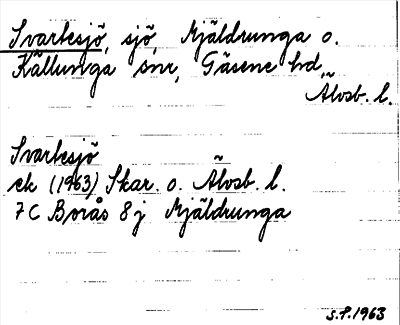 Svartesjö, sjö, Mjäldrunga o.
Källunga snr, Gäsene hd,
Älvsb. l.
Svartesjö
ek (1963) Skar. o. Älvsb. l.
7 C Borås 8 j Mjäldrunga
S.P. 1963